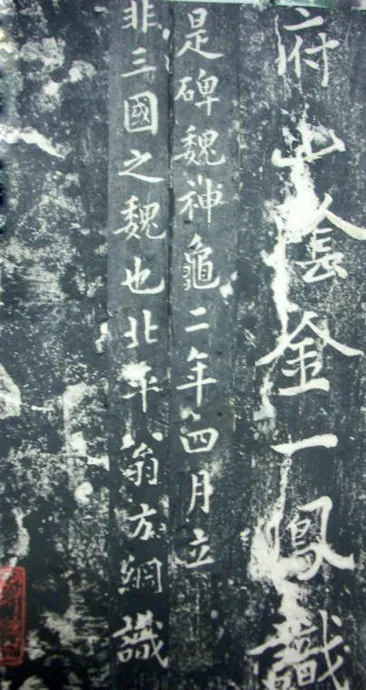 府山陰金一鳳識
是碑魏神龜二年四月立
非三國之魏也北平翁方綱識